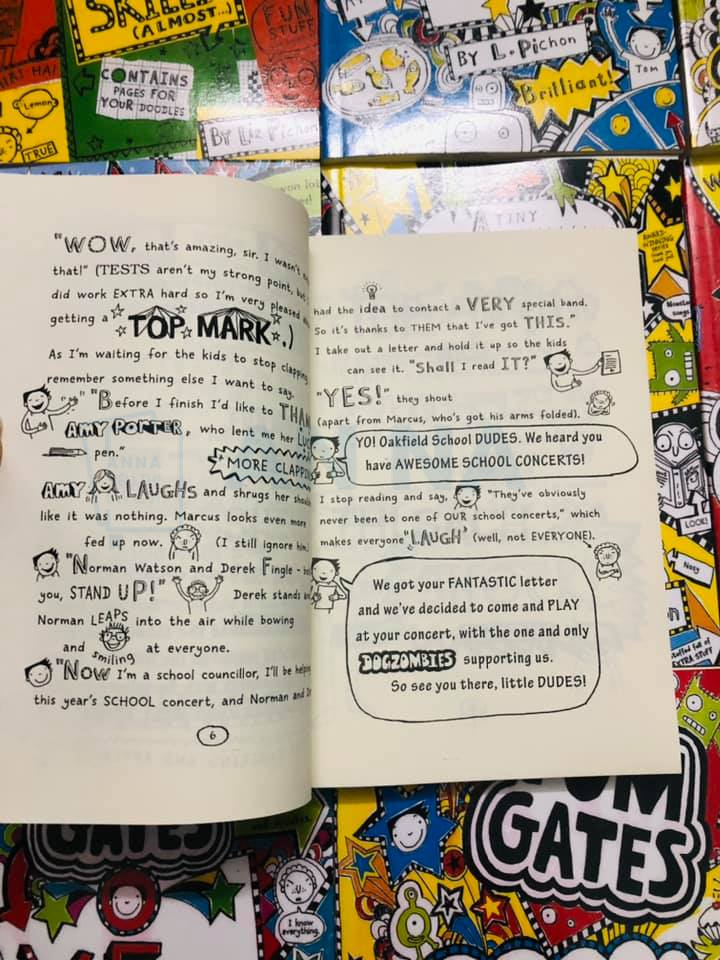 SKILLS
(ALMOST...)
FUN
STUFF
CONTAINS
PAGES FOR
YOUR DOODLES
Lemon
TRUE
BY Liz Pichon
BY L. Pichon
TOM
Brilliant!
TINY
AWARD-
WINNING
"WOW, that's amazing, sir. I wasn't
that!" (TESTS aren't my strong point, but I
did work EXTRA hard so I'm very pleased
getting a TOP MARK.)
As I'm waiting for the kids to stop clapping,
remember something else I want to say.
"Before I finish I'd like to
AMY PORTER, who lent me her
pen."
MORE CLAPPING
AMY LAUGHS and shrugs her
like it was nothing. Marcus looks even more
fed up now. (I still ignore him)
"Norman Watson and Derek Fingle –
you, STAND UP!" Derek stands
Norman LEAPS into the air while bowing
and smiling at everyone.
"Now I'm a school councillor, I'll be helping
this year's SCHOOL concert, and Norman and
6
had the idea to contact a VERY special band.
So it's thanks to THEM that I've got THIS."
I take out a letter and hold it up so the kids
can see it. "Shall I read IT?"
"YES!" they shout
(apart from Marcus, who's got his arms folded).
YO! Oakfield School DUDES. We heard you
have AWESOME SCHOOL CONCERTS!
I stop reading and say, "They've obviously
never been to one of OUR school concerts," which
makes everyone "LAUGH" (well, not EVERYONE).
We got your FANTASTIC letter
and we've decided to come and PLAY
at your concert, with the one and only
DOGZOMBIES supporting us.
So see you there, little DUDES!
LOOK!
Nosy
stuffed full of
EXTRA STUFF
GATES
I know
everything.
TOM
GATES